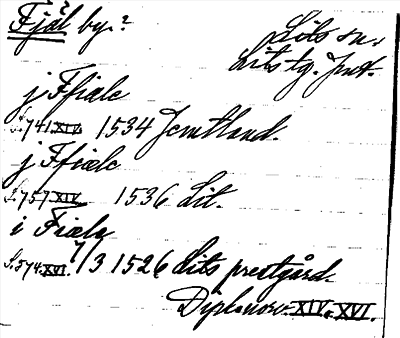 Fjäl by.?
Lits sn.
Lits tg. Jmt.
j Ffiale
S. 741 XIV. 1534 Jemtland.
j Ffiæle
S. 757 XIV. 1536 Lit.
i Fiæla
S. 574 XVI. 7/3 1526 Lits prestgård.
Dipl. norv. XIV. XVI.